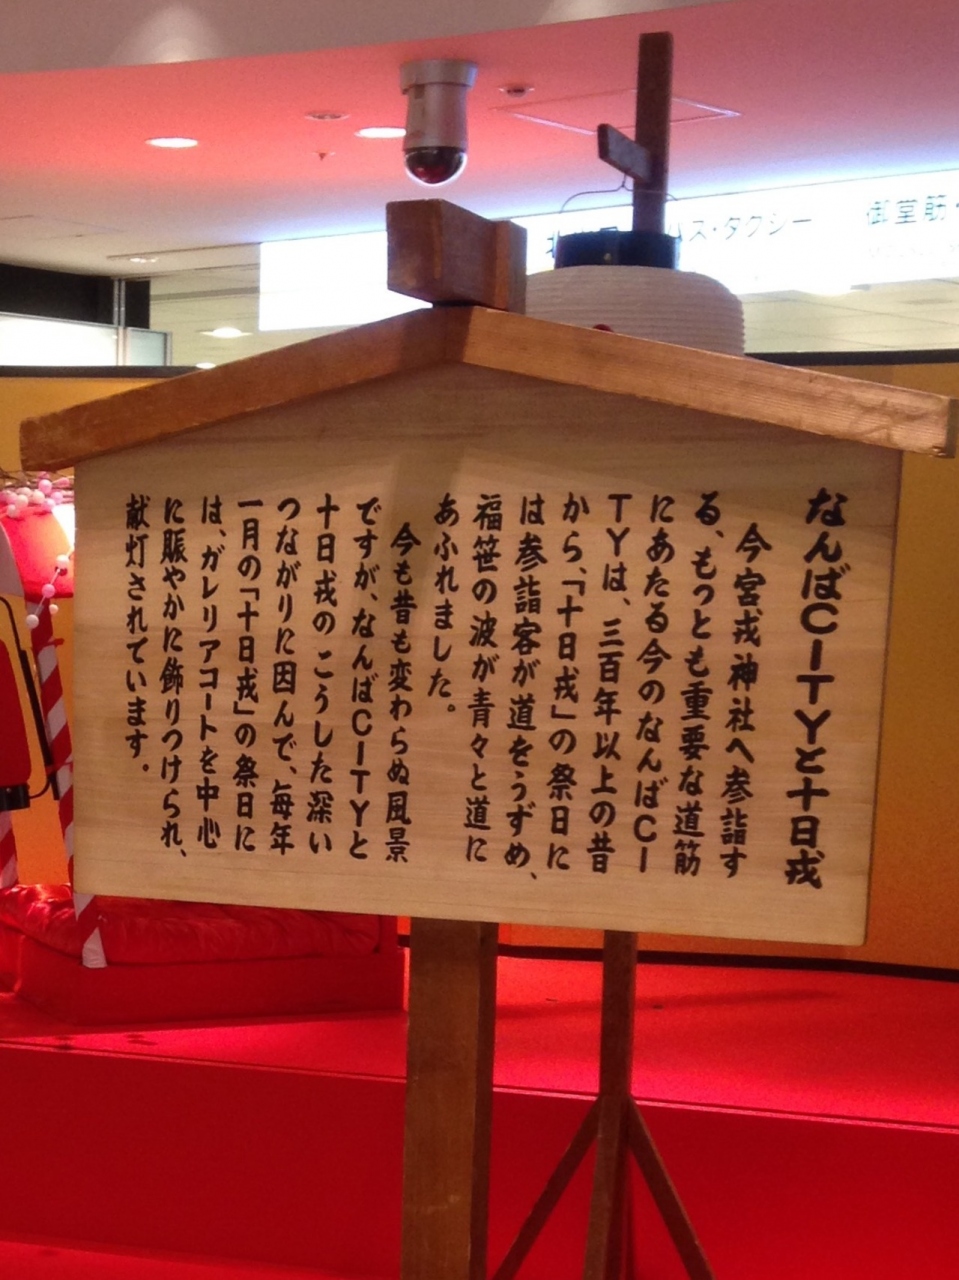 なんばCITYと十日戎
今宮戎神社へ参詣す
る、もっとも重要な道筋
にあたる今のなんばCI
TYは、三百年以上の昔
から、「十日戎」の祭日に
は参詣客が道をうずめ、
福笹の波が青々と道に
あふれました。
今も昔も変わらぬ風景
ですが、なんばCITYと
十日戎のこうした深い
つながりに因んで、毎年
一月の「十日戎」の祭日に
は、ガレリアコートを中心
に賑やかに飾りつけられ、
献灯されています。
バス・タクシー
御堂筋・